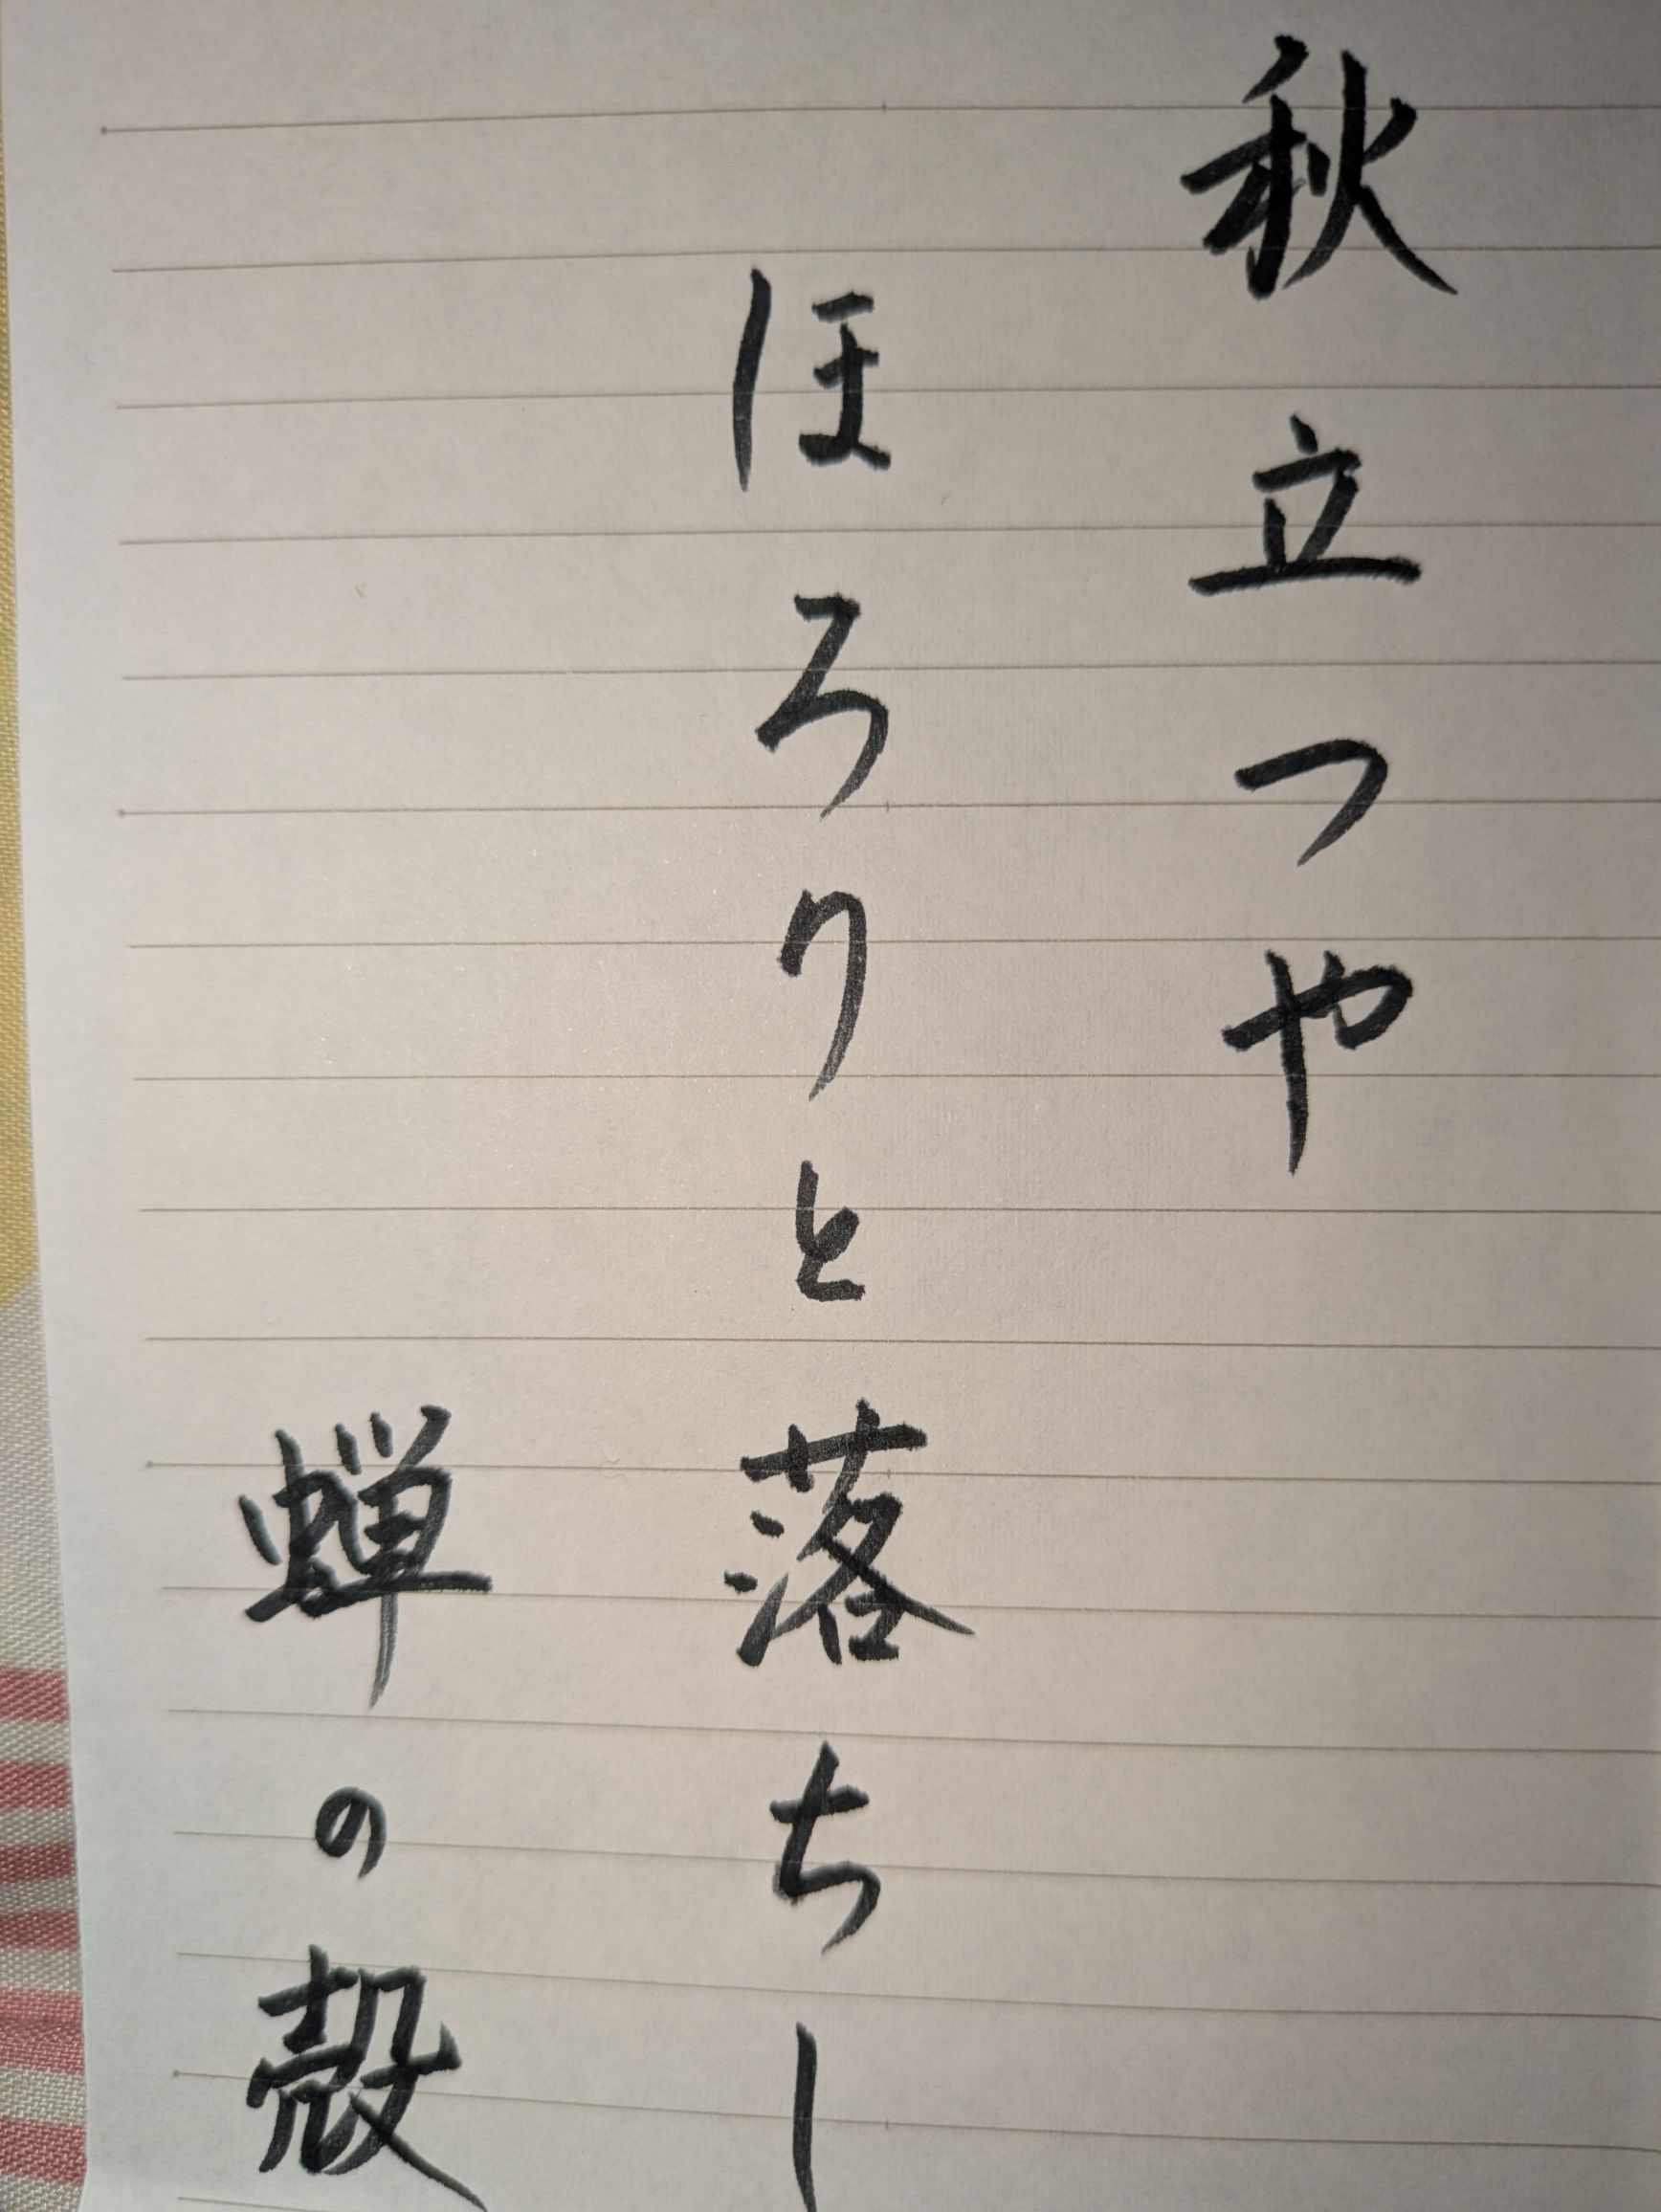 秋立つや
ほろりと落ちし
蝉の殻